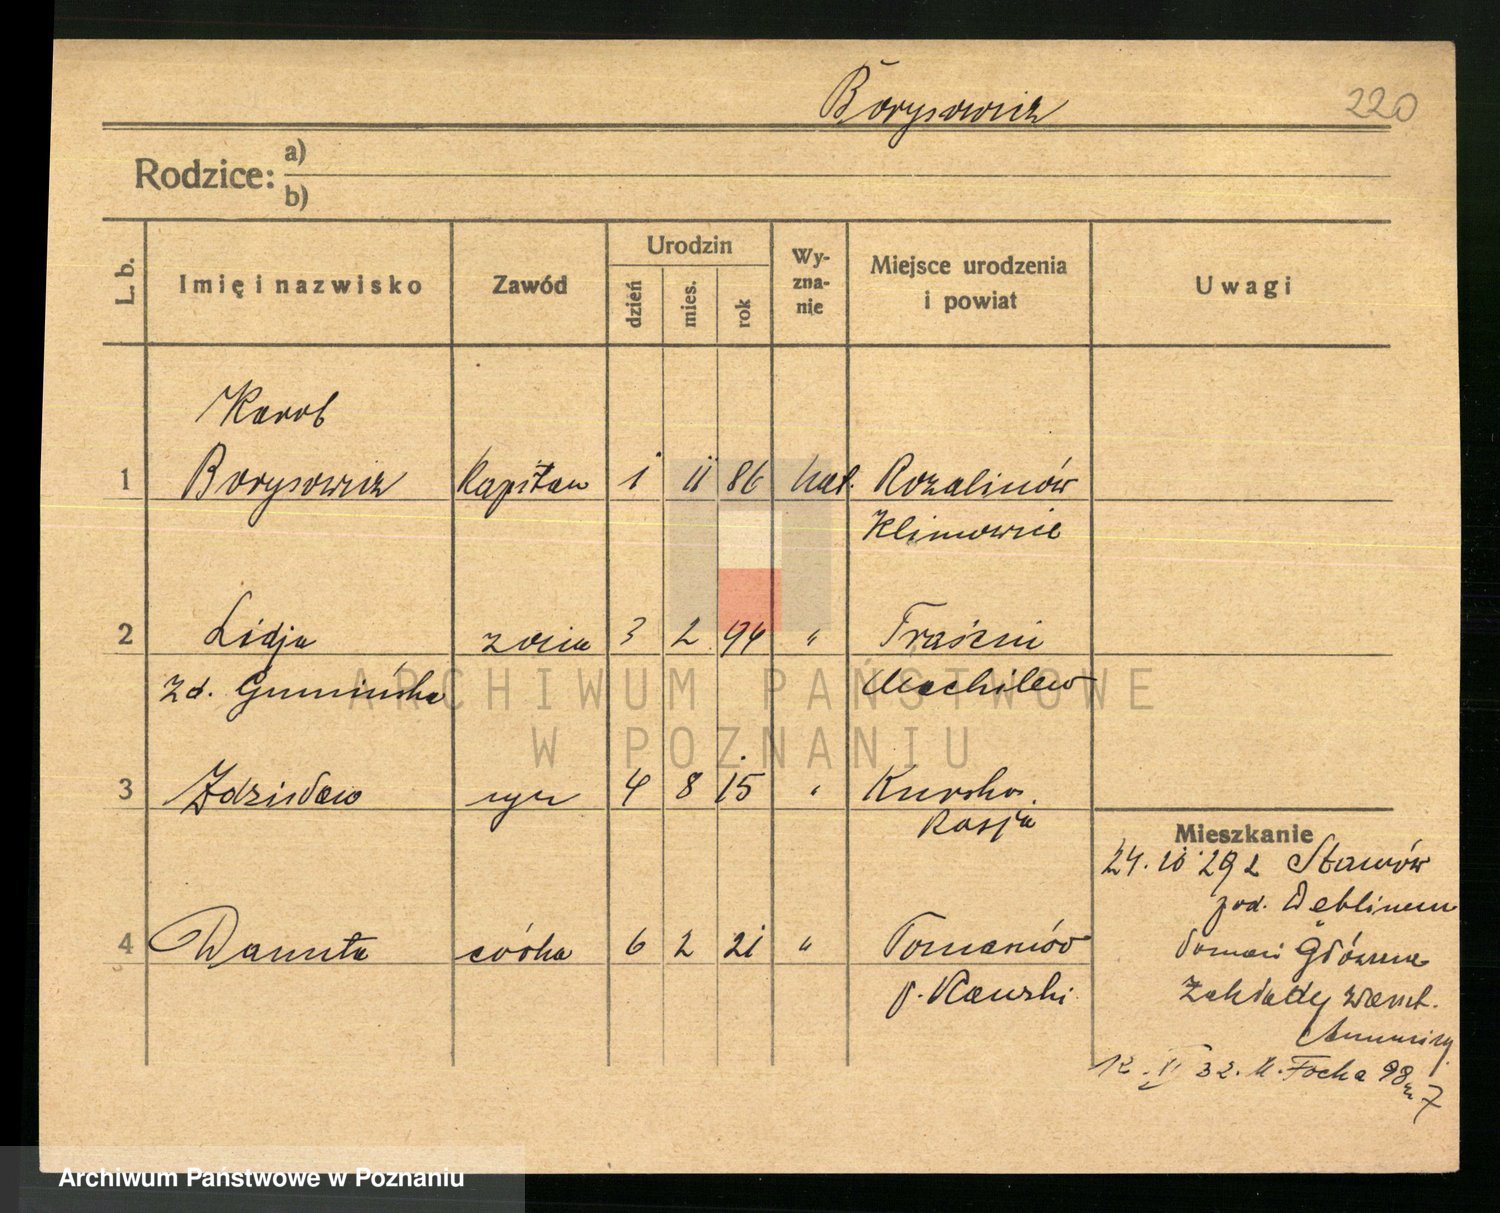 Borysowicz
220
Rodzice: a)
b)
L. b. Imię i nazwisko Zawód Urodzin dzień mies. rok Wy-zna-nie Miejsce urodzenia i powiat Uwagi
Karol
1 Borysowicz Kapitan 1 11 86 kat. Rozalinów
Klimowice
2 Lidja żona 3 2 94 " Traśzni
zd. Gumińska Mochilew
3 Zdzisław syn 4 8 15 " Kursko
Rosja
Mieszkanie
24. 10 29 z Stawów
pod. Dęblinem
4 Danuta córka 6 2 21 " Tomanów
p. Kawski
Główna
Zakłady
Amunicy.
12. 32. M. Focha 98 m 7
ARCHIWUM PAŃSTWOWE
W POZNANIU
Archiwum Państwowe w Poznaniu